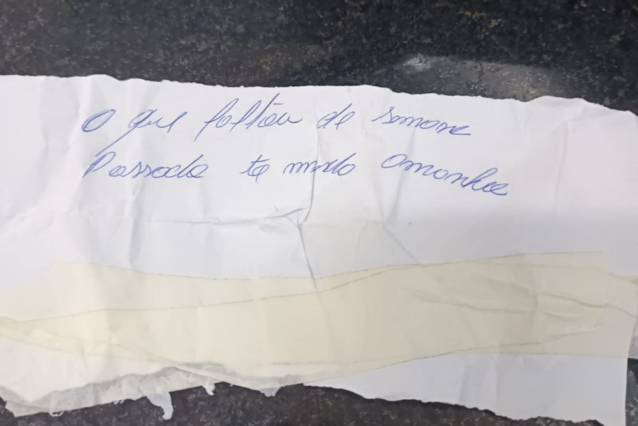 O que faltou de semana
Passada te mando amanhã